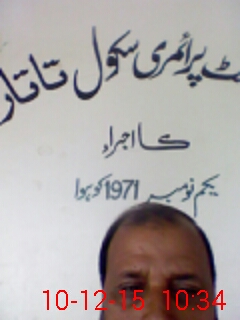 ٹ پرائمری سکول تاتار
کا اجراء
یکم نومبر 1971 کو ہوا
10-12-15 10:34